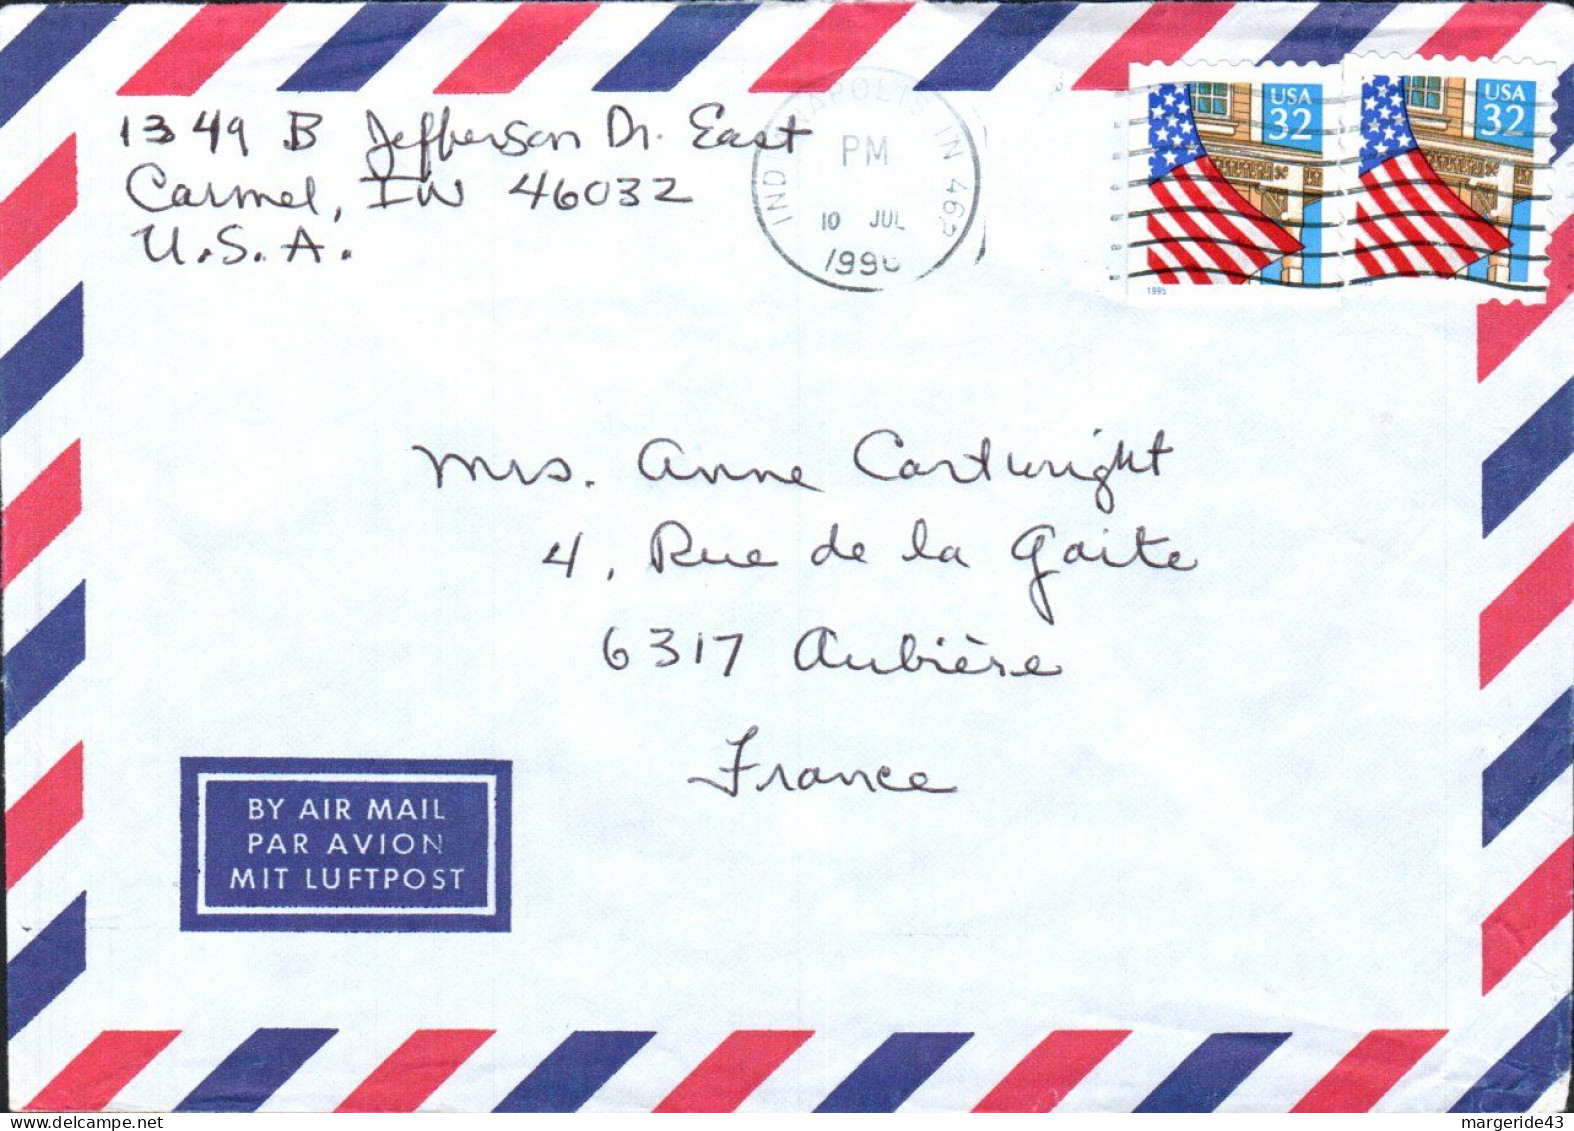 1349 B Jefferson Dr. East
Carmel, IN 46032
U.S.A.
INDIANAPOLIS IN 462
PM
10 JUL
1996
USA
32
1995
USA
32
Mrs. Anne Cartwright
4, Rue de la Gaite
6317 Aubière
France
BY AIR MAIL
PAR AVION
MIT LUFTPOST
delcampe.net
margeride43